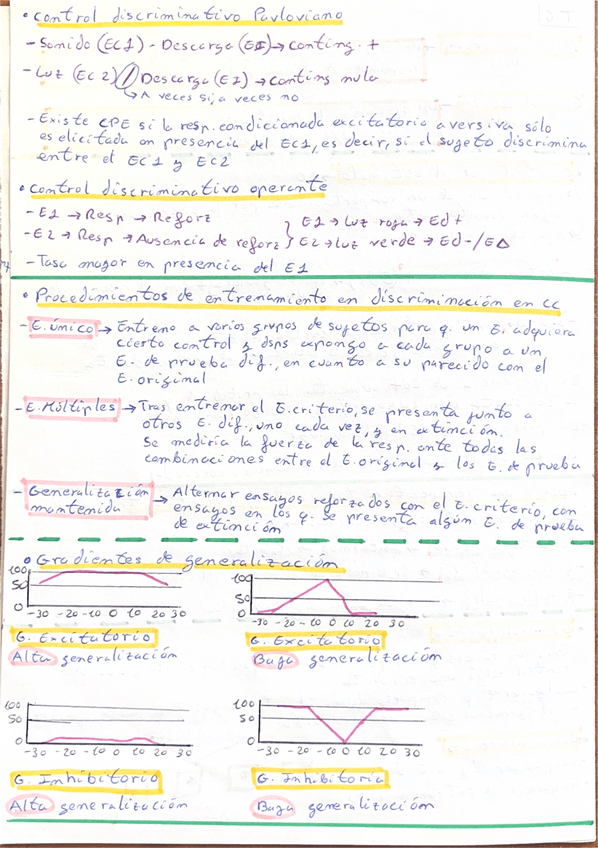 • Control discriminativo Pavloviano
- Sonido (EC1) - Descarga (EI) → Conting. +
- Luz (EC2) / Descarga (EI) → Conting nula
↳ A veces si, a veces no
- Existe CPE si la resp. condicionada excitatoria aversiva sólo
es elicitada en presencia del EC1, es decir, si el sujeto discrimina
entre el EC1 y EC2
• Control discriminativo operante
- E1 → Resp → Reforz } E1 → Luz roja → Ed+
- E2 → Resp → Ausencia de reforz } E2 → Luz verde → Ed-/E∆
- Tasa mayor en presencia del E1
• Procedimientos de entrenamiento en discriminación en CC
- E. único → Entreno a varios grupos de sujetos para q. un E. adquiera
cierto control y dsps expongo a cada grupo a un
E. de prueba dif., en cuanto a su parecido con el
E. original
- E. Múltiples → Tras entrenar el E. criterio, se presenta junto a
otros E. dif., uno cada vez, y en extinción.
Se mediría la fuerza de la resp. ante todas las
combinaciones entre el E. original y los E. de prueba
- Generalización mantenida → Alternar ensayos reforzados con el E. criterio, con
ensayos en los q. se presenta algún E. de prueba
de extinción
• Gradientes de generalización
100
50
0
-30 -20 -10 0 10 20 30
G. Excitatorio
Alta generalización
100
50
0
-30 -20 -10 0 10 20 30
G. Excitatorio
Baja generalización
100
50
0
-30 -20 -10 0 10 20 30
G. Inhibitorio
Alta generalización
100
50
0
-30 -20 -10 0 10 20 30
G. Inhibitorio
Baja generalización